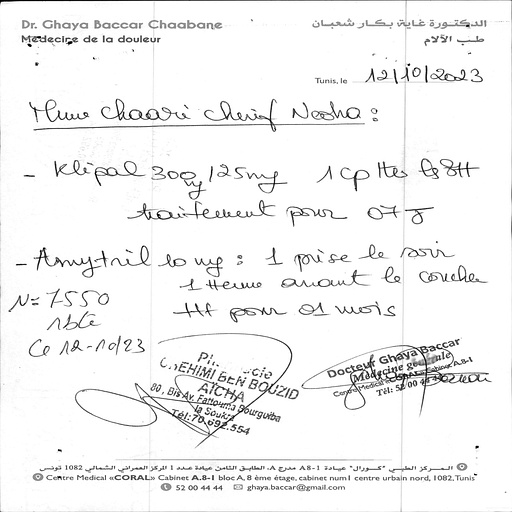 Dr. Ghaya Baccar Chaabane
الدكتورة غاية بكار شعبان
Médecine de la douleur
طب الآلام
Tunis, le 12/10/2023
Mme Chaari Cherif Nesha :
- Klipal 300mg/25mg 1 cp ttes les 8H
traitement pour 07 J
- Amytril 10 mg : 1 prise le soir
1 Heure avant le coucher
ttt pour 01 mois
N= 7550
Ce 12-10/23
CHEHIMI BEN BOUZID
AICHA
80, Bis Av. Fattouma Bourguiba
la Soukra
Tél: 70 692 554
Docteur Ghaya Baccar
Médecine générale
Centre Medical Cabinet A.8-1
Tél: 52 00 44 44
المركز الطبي "كورال" عيادة A8-1 مدرج A، الطابق الثامن عيادة عدد 1 المركز العمراني الشمالي 1082 تونس
Centre Medical «CORAL» Cabinet A.8-1 bloc A, 8 ème étage, cabinet num1 centre urbain nord, 1082, Tunis
52 00 44 44 ghaya.baccar@gmail.com